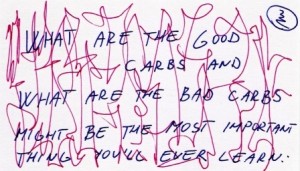 WHAT ARE THE GOOD
CARBS AND
WHAT ARE THE BAD CARBS
MIGHT BE THE MOST IMPORTANT
THING YOU'LL EVER LEARN.